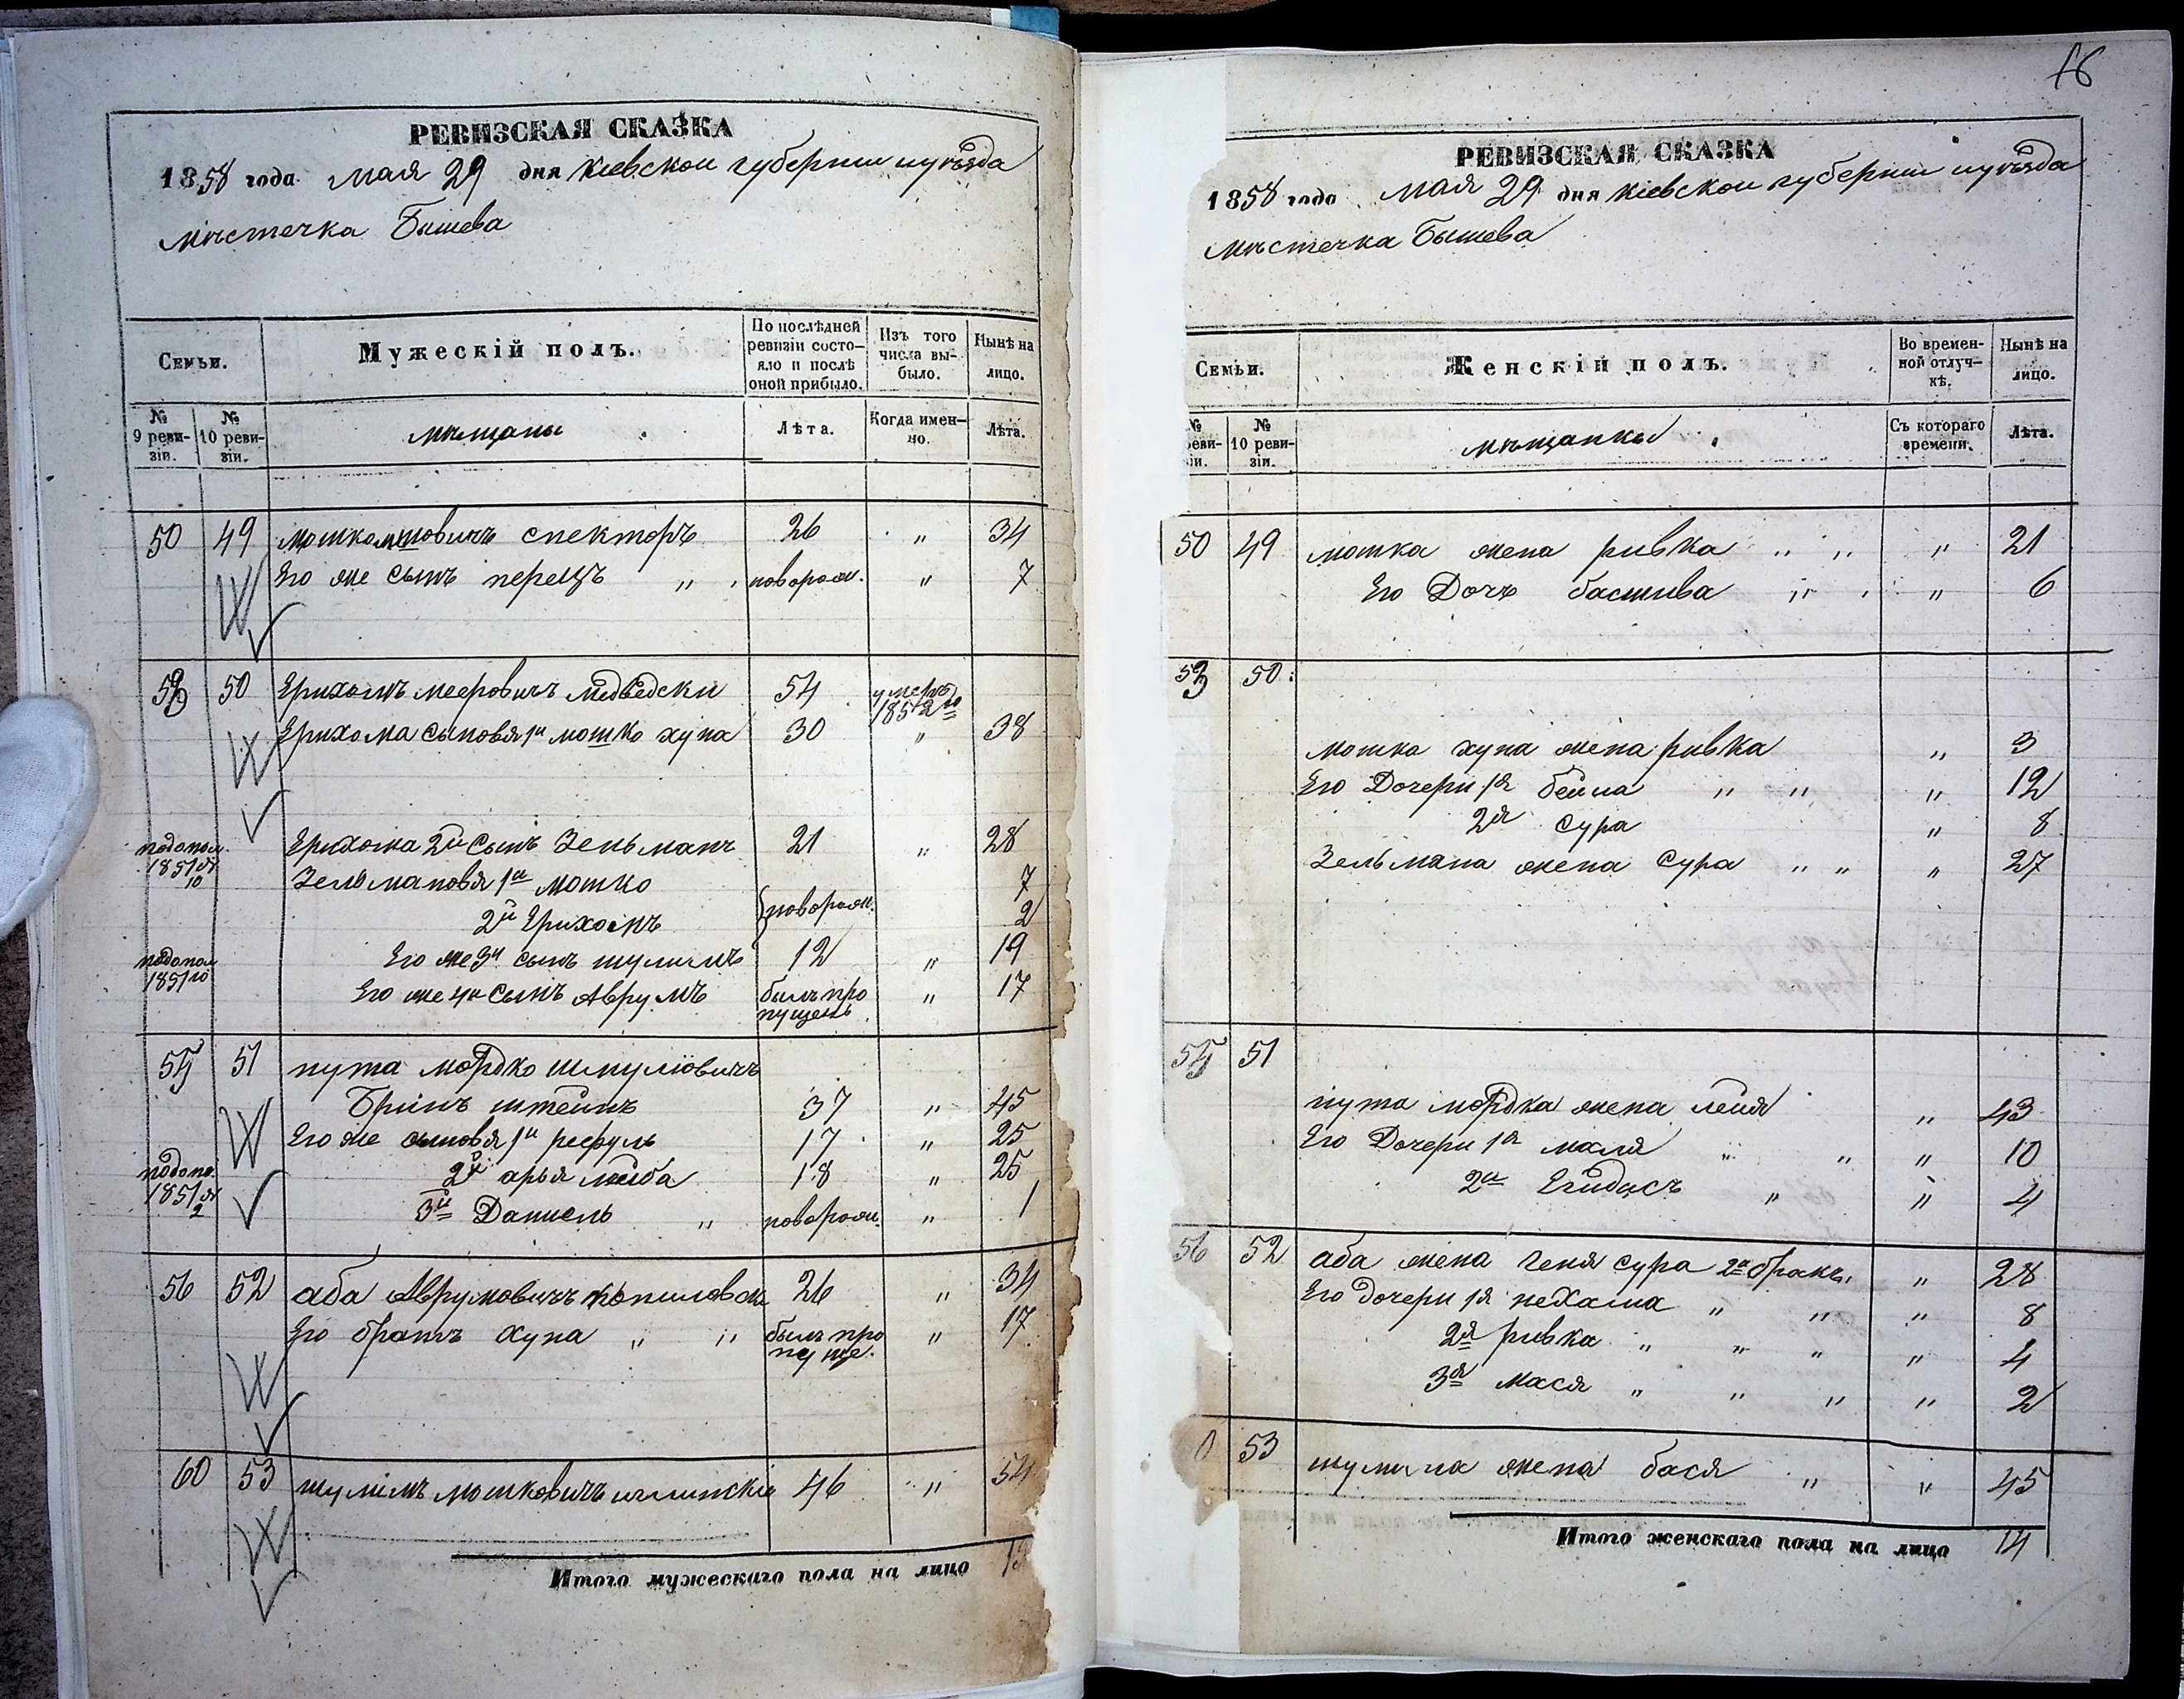 16
РЕВИЗСКАЯ СКАЗКА
1858 года мая 29 дня Кіевской губерніи и уѣзда
мѣстечка Бышева
Семьи.
Мужескій полъ.
По послѣдней ревизіи состояло и послѣ оной прибыло.
Изъ того числа выбыло.
Нынѣ на лицо.
№ 9 ревизіи.
№ 10 ревизіи.
мѣщаны
Лѣта.
Когда именно.
Лѣта.
50 49 Мошко спекторъ 26 " 34
Его же сынъ перецъ " " новорож. " 7
50 Ерихомъ мееровичъ медведски 54 умеръ 1852го
Ерихома сыновя 1й мошко хуна 30 " 38
1851 10 Ерихома 2й сынъ Зельманъ 21 " 28
Зельмановя 1й мошко 7
2й Ерихомъ новорож. 2
1851 10 Его же 3й сынъ шулимъ 12 " 19
Его же 4й сынъ Аврумъ былъ пропущенъ " 17
51 нута мордко шмулiовичъ
Бринъ штейнъ 37 " 45
Его же сыновя 1й рефуль 17 " 25
1851 2 2й арья лейба 18 " 25
3й Даниель " новорож. " 1
56 52 аба Аврумовичъ 26 " 34
Его братъ хуна " " былъ пропуще. " 17
60 53 шулимъ мошковичъ 46 " 54
Итого мужескаго пола на лицо 13
РЕВИЗСКАЯ СКАЗКА
1858 года мая 29 дня Кіевской губерніи и уѣзда
мѣстечка Бышева
Семьи.
Женскій полъ.
Во временной отлучкѣ.
Нынѣ на лицо.
№ реви- іи.
№ 10 ревизіи.
мѣщанки
Съ котораго времени.
Лѣта.
50 49 мошка жена ривка " " " 21
Его Дочь басшива " " " 6
53 50
мошка хуна жена ривка " 3
Его Дочери 1я бейла " " " 12
2я сура " 8
Зельмана жена сура " " " 27
51
нута мордка жена лейя " 43
Его Дочери 1я маля " " " 10
2я " " 4
56 52 аба жена геня сура 2й бракъ. " 28
Его дочери 1я нехама " " " 8
2я ривка " " " " 4
3я мася " " " " 2
0 53 шулима жена бася " " 45
Итого женскаго пола на лицо 14